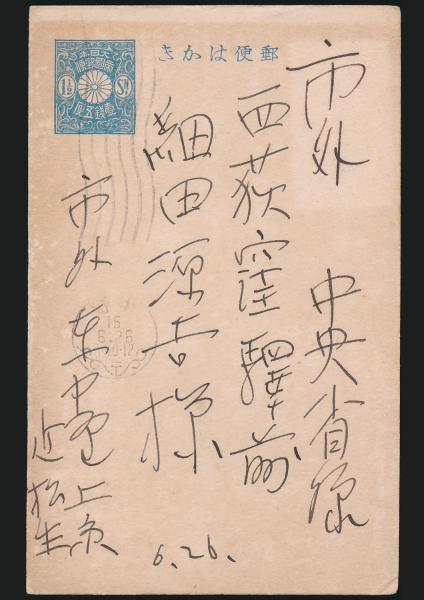 郵便はかき
大日本
帝國郵便
1½ Sn
壹錢五厘
市外 中央省線
西荻窪驛前
細田源吉様
市外 東中野
近松生
6.26.
15
6.26